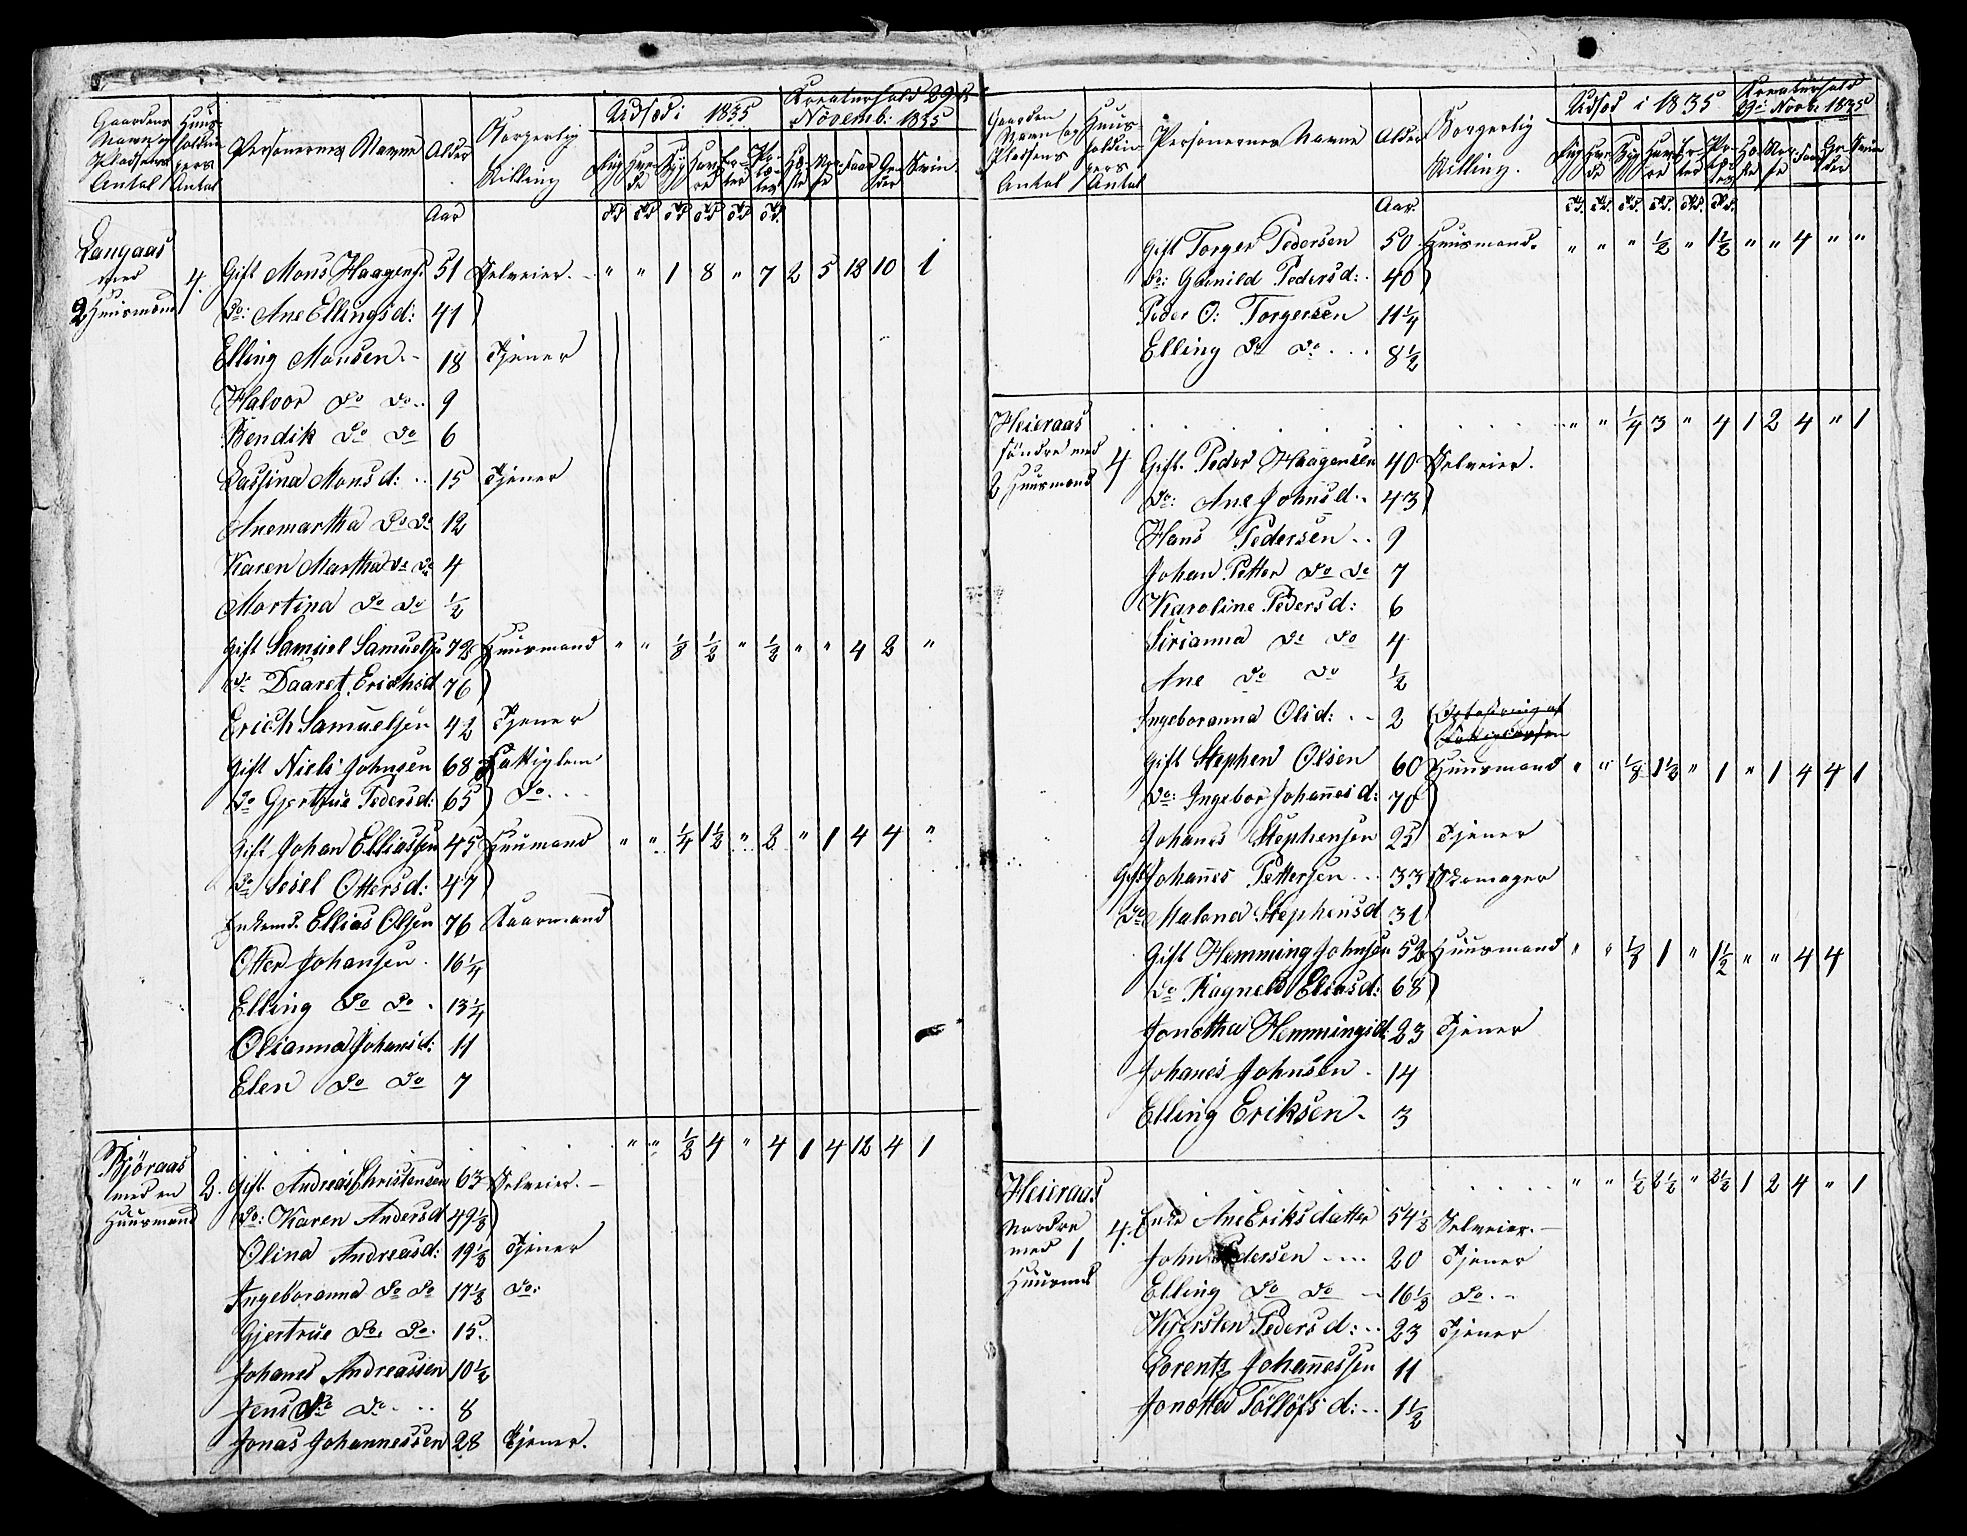 Gaardens Navn og Pladsens Antal | Huusholdningers Antal | Personernes Navne | Alder | Borgerlig Stilling | Udsæd i 1835 | Kreaturhold 29de Novemb: 1835
Rug | Hvede | Byg | Havre | Erter | Poteter | Heste | Nør | Faar | Geder | Sviin
Aar | Td | Td | Td | Td | Td | Td
Langaas med 2 Huusmænd | 4. | Gift Mons Haagens: | 51 | Selveier. | " | " | 1 | 8 | " | 7 | 2 | 5 | 18 | 10 | 1
Do: Ane Ellingsd: | 41
Elling Monsen | 18 | Tjener
Halvor do do | 9
Bendik do do | 6
Lassina Monsd: | 15 | Tjener
Anemartha do do | 12
Karen Martha do do | 4
Martina do do | 1/2
Gift Samuel Samuels | 72 | Huusmand | " | " | 1/8 | 1/2 | " | 1/2 | " | " | 4 | 2 | "
do Daaret Erichsd | 76
Erich Samuelsen | 42 | Tjener
Gift Niels Johnsen | 68 | Fattiglem
Do Gjertrue Pedersd: | 65 | Do
Gift Johan Elliassen | 45 | Huusmand | " | " | 1/4 | 1 1/2 | " | 2 | " | 1 | 4 | 4 | "
Do Sesel Ottersd: | 47
Enkemd. Ellias Olsen | 76 | Kaarmand
Otter Johansen | 16 1/4
Elling do do | 13 1/4
Olianna Johansd: | 11
Elen do do | 7
Björaas med en Huusmand | 2. | " | " | 1/2 | 4 | " | 4 | 1 | 4 | 12 | 4 | 1
Gift Andreas Christensen | 63 | Selveier.
Do: Karen Andersd | 49 1/2
Olina Andreasd: | 19 1/2 | Tjener
Ingeboranna do do | 17 1/2 | do:
Gjertrue do. do. | 15.
Johanes Andreassen | 10 1/2
Jens do do | 8
Jonas Johannessen | 28 | Tjener.
Gaarden Navn og Pladsens Antal | Huusholdningers Antal | Personernes Navne | Alder | Borgerlig Stilling. | Udsæd i 1835 | Kreaturhold 29de Novb: 1835
Rug | Hvede | Byg | Havre | Erter | Poteter | Heste | Nør | Faar | Geder | Sviin
Aar. | Td. | Td. | Td. | Td. | Td. | Td.
Gift Torger Pedersen | 50 | Huusmand. | " | " | " | 1/2 | " | 1 1/2 | " | " | 4 | " | "
Do: Gunild Pedersd: | 40
Peder O: Torgersen | 11 1/4
Elling do do | 8 1/2
Heieraas söndre med 2 Huusmænd | 4 | " | " | 1/4 | 3 | " | 4 | 1 | 2 | 4 | " | 1
Gift. Peder Haagensen | 40 | Selveier.
Do: Ane Johnsd. | 43
Hans Pedersen | 9
Johan Petter do do | 7
Karoline Pedersd: | 6
Sirianna do do | 4
Ane do do | 1/2
Ingeboranna Olsd: | 2
Gift Stephen Olsen | 60 | Huusmand | " | " | 1/8 | 1 1/2 | " | 1 | " | 1 | 4 | 4 | 1
Do: Ingebor Johannesd: | 70
Johanes Stephensen | 25 | Tjener
Gift Johannes Pettersen | 33 | Skomager
Do Malena Stephensd | 31
Gift Hemming Johnsen | 52 | Huusmand | " | " | 1/8 | 1 | " | 1 1/2 | " | " | 4 | 4
Do Ragnele Eliasd: | 68
Jonetha Hemmingsd: | 23 | Tjener
Johanes Johnsen | 14
Elling Eriksen. | 3
Heieraas Nordre med 1 Huusmd | 4. | " | " | 1/2 | 2 1/2 | " | 2 1/2 | 1 | 2 | 4 | " | 1
Enke Ane Eriksdatter | 54 1/2 | Selveier.
John Pedersen | 20 | Tjener
Elling Do Do | 16 1/2 | Do.
Kjersten Pedersd: | 23 | Tjener
Lorentz Johannessen | 11
Jonetha Tollöfsd: | 1 1/2